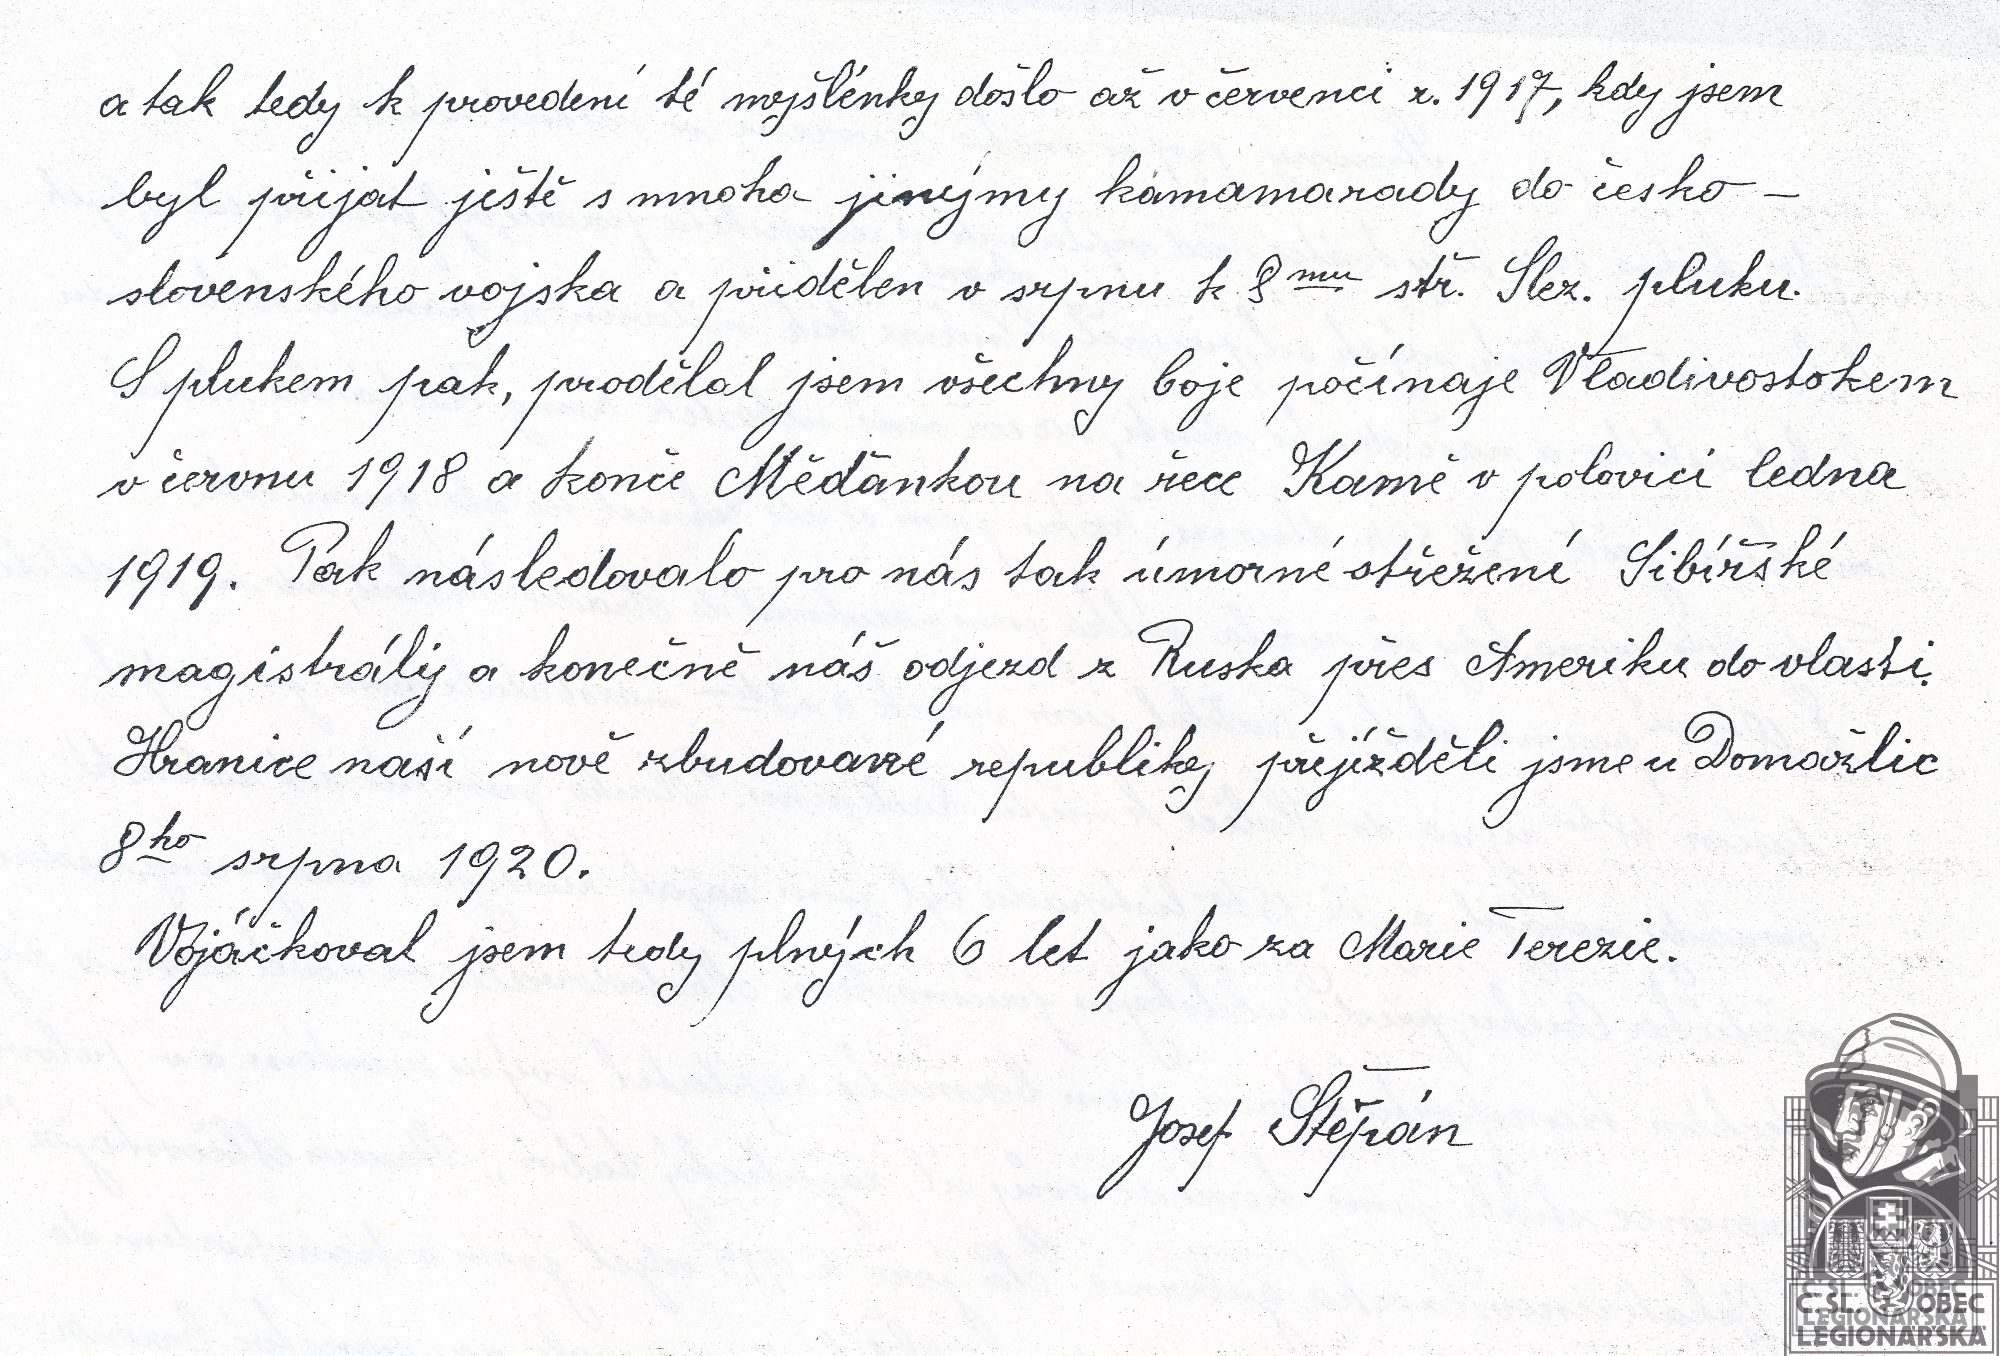 a tak tedy k provedení té myšlénky došlo až v červenci r. 1917, kdy jsem
byl přijat ještě s mnoha jinýmy kamamarady do česko-
slovenského vojska a přidělen v srpnu k 8mu stř. Slez. pluku.
S plukem pak, prodělal jsem všechny boje počínaje Vladivostokem
v červnu 1918 a konče Měďánkou na řece Kamě v polovici ledna
1919. Pak následovalo pro nás tak úmorné střežení Sibířské
magistrály a konečně náš odjezd z Ruska přes Ameriku do vlasti.
Hranice naší nově zbudované republiky přejížděli jsme u Domažlic
8ho srpna 1920.
Vojáčkoval jsem tedy plných 6 let jako za Marie Terezie.
Josef Štěpán
Č. SL. OBEC
LEGIONÁŘSKÁ